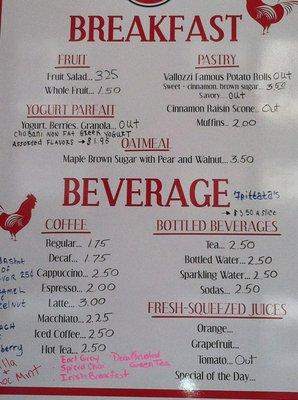 BREAKFAST
FRUIT
Fruit Salad... 3.25
Whole Fruit... 1.50
YOGURT PARFAIT
Yogurt, Berries, Granola... OUT
chobani non Fat Greek YOGURT
Assorted FLAVORS → $1.95
PASTRY
Vallozzi Famous Potato Rolls OUT
Sweet - cinnamon, brown sugar... 3.50
Savory... OUT
Cinnamon Raisin Scone... Out
Muffins... 2.00
OATMEAL
Maple Brown Sugar with Pear and Walnut... 3.50
BEVERAGE
"Frittata's
→ $3.50 A slice
COFFEE
Regular... 1.75
Decaf... 1.75
Cappuccino... 2.50
Espresso... 2.00
Latte... 3.00
Macchiato... 2.25
Iced Coffee... 2.50
Hot Tea... 2.50
Earl Grey
Spiced Chai
Irish Breakfast
Decaffeinated
Green Tea
OF
25¢
+
Mint
BOTTLED BEVERAGES
Tea... 2.50
Bottled Water... 2.50
Sparkling Water... 2.50
Sodas... 2.50
FRESH-SQUEEZED JUICES
Orange...
Grapefruit...
Tomato... Out
Special of the Day...